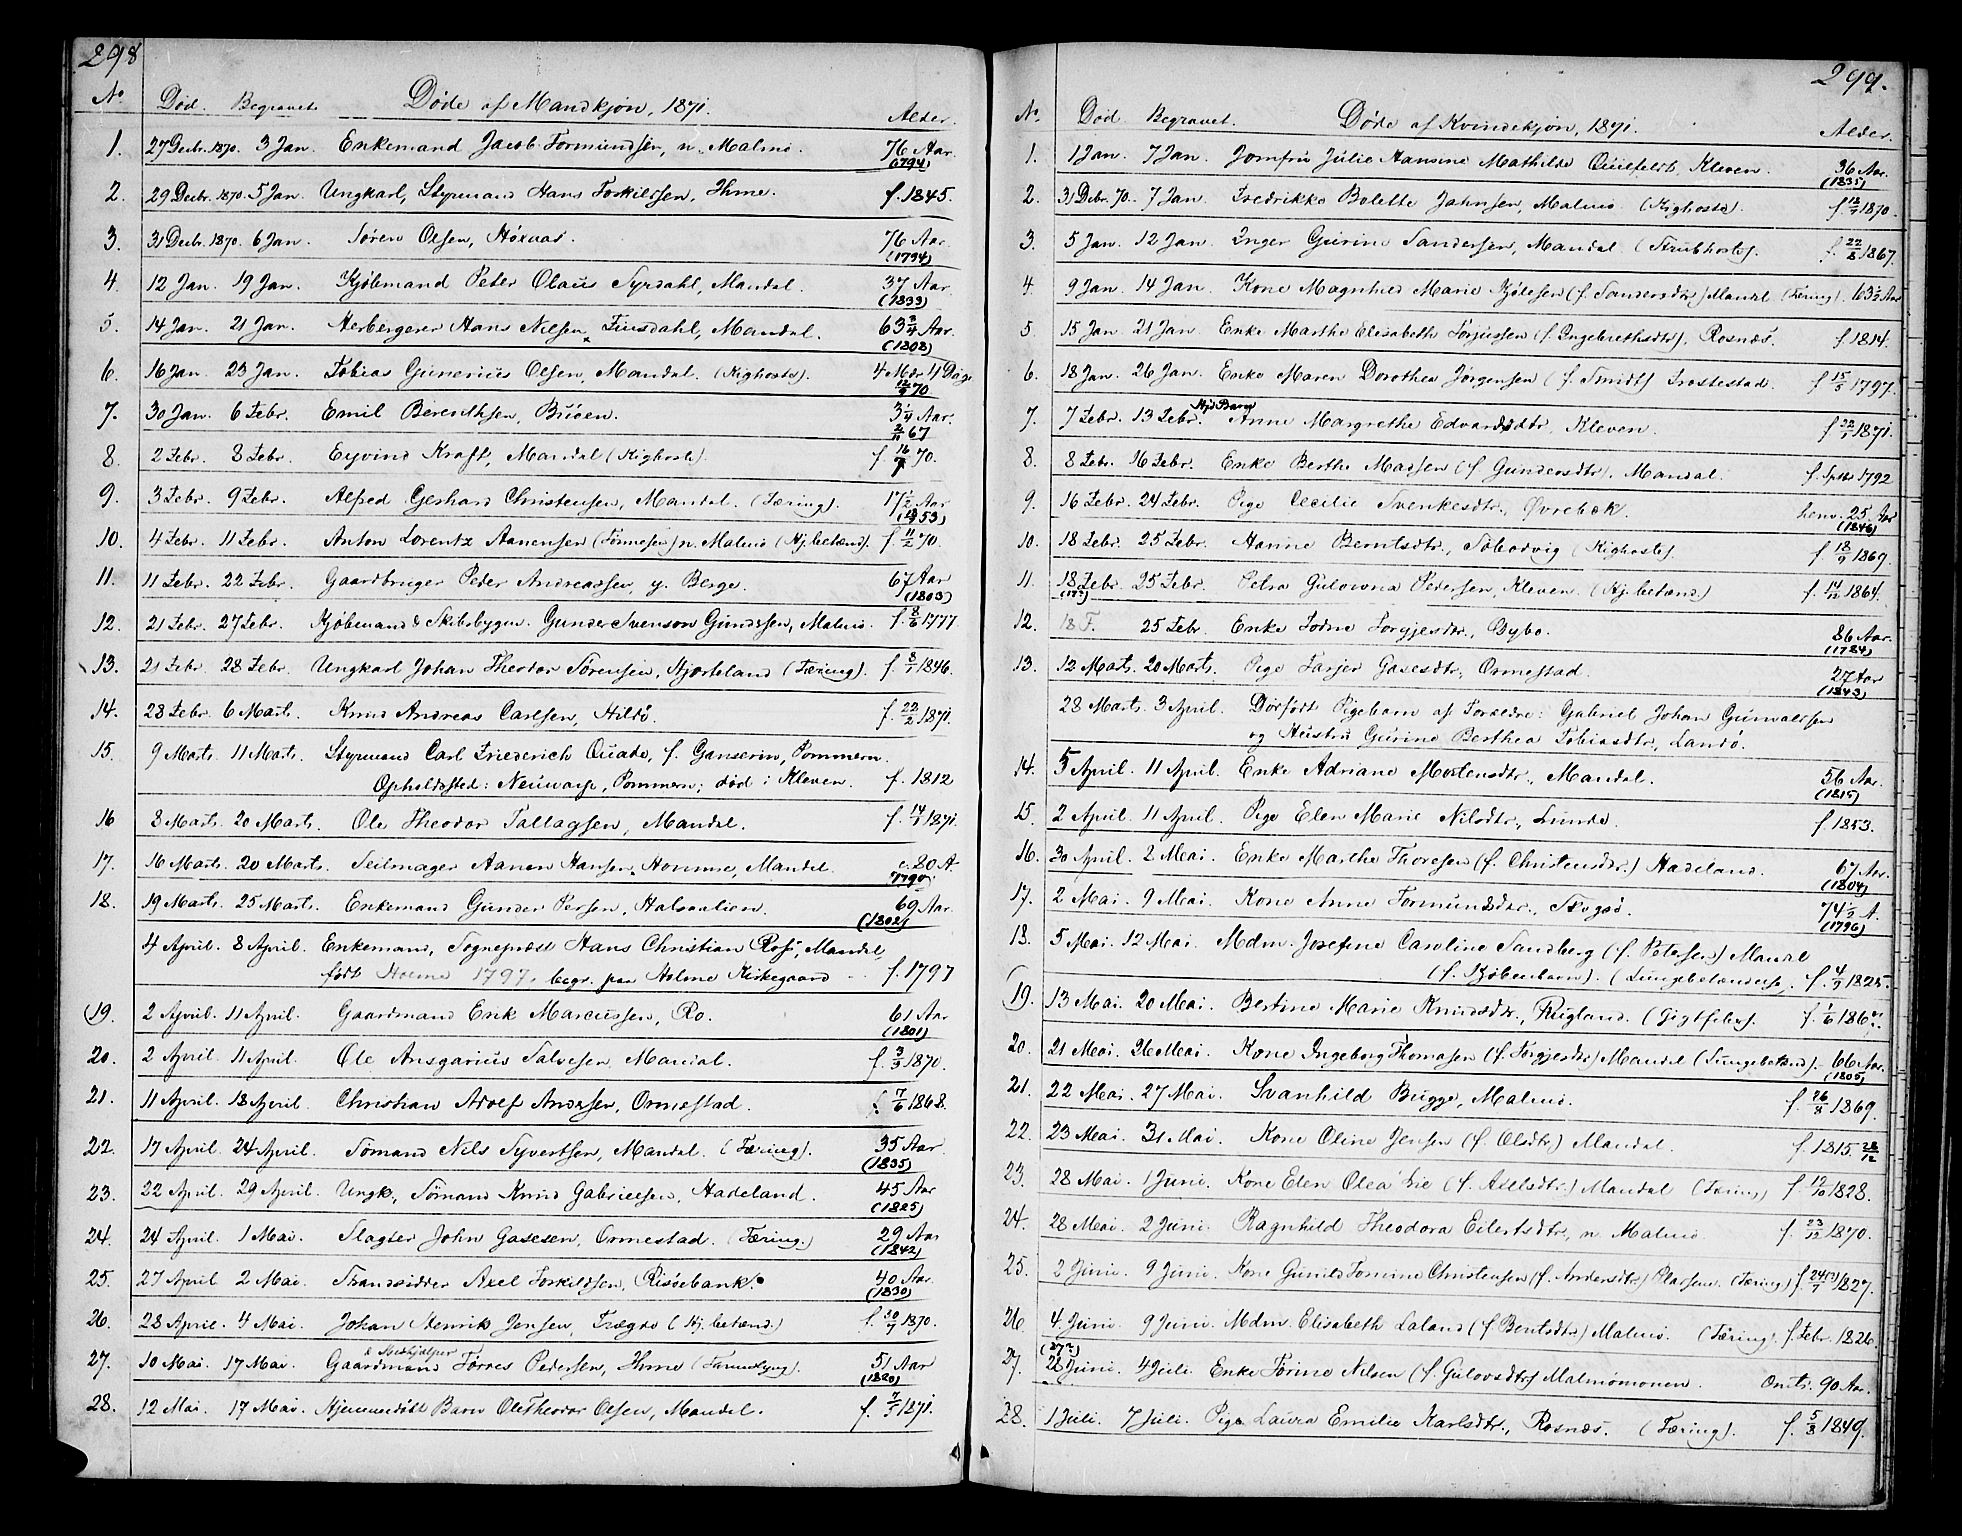 298
No. Død. Begravet. Døde af Mandkjøn, 1871. Alder.
1. 27 Decbr. 1870. 3 Jan. Enkemand Jacob Tormundsen, n. Malmø. 76 Aar. (1794)
2. 29 Decbr. 1870. 5 Jan. Ungkarl, Styrmand Hans Torkildsen, Ihme. f. 1845.
3. 31 Decbr. 1870. 6 Jan. Søren Olsen, 76 Aar. (1794)
4. 12 Jan. 19 Jan. Kjøbmand Peter Olaus Syrdahl, Mandal. 37 Aar (1833)
5. 14 Jan. 21 Jan. Herbergerer Hans Nilsen Finsdahl, Mandal. 63 3/4 Aar. (1808)
6. 16 Jan. 23 Jan. Tobias Gunerius Olsen, Mandal. (Kighoste). 4 Mdr 4 Dage 12/9 70
7. 30 Jan. 6 Febr. Emil Berenthsen, Buøen. 3 1/4 Aar. 2/11 67
8. 2 Febr. 8 Febr. Eyvind Kraft, Mandal (Kighoste). f. 16/9 70.
9. 3 Febr. 9 Febr. Alfred Gerhard Christensen, Mandal. (Tæring). 17 1/2 Aar (53)
10. 4 Febr. 11 Febr. Anton Lorentz Aanensen (Tønnesen) n. Malmø (Hj. betænd). f. 11/2 70.
11. 11 Febr. 22 Febr. Gaardbruger Peder Andreassen, y. Berge. 67 Aar (1803)
12. 21 Febr. 27 Febr. Kjøbmand & Skibsbygm. Gunder Svenson Gundersen, Malmø. f. 8/6 1777.
13. 21 Febr. 28 Febr. Ungkarl Johan Theodor Sørensen, Hjorteland (Tæring). f. 8/7 1846.
14. 28 Febr. 6 Marts. Knud Andreas Carlsen, Hildø. f. 22/2 1871.
15. 9 Marts. 11 Marts. Styrmand Carl Friederich Quade, f. Ganserin, Pommern.
Opholdssted: Neuwarp, Pommern; død i Kleven. f. 1812
16 8 Marts. 20 Marts. Ole Theodor Tallagsen, Mandal. f. 14/1 1871.
17. 16 Marts. 20 Marts. Seilmager Aanen Hansen, Homme, Mandal. c. 80 A. 1790
18. 19 Marts. 25 Marts. Enkemand Gunder Persen, Halsaalien. 69 Aar. (1802)
4 April. 8 April. Enkemand, Sogneprest Hans Christian Ross, Mandal,
født Holme 1797. begr. paa Holme Kirkegaard f. 1797
19. 2 April. 11 April. Gaardmand Erik Marcussen, Ro. 61 Aar (1801)
20. 2 April. 11 April. Ole Ansgarius Salvesen, Mandal. f. 3/9 1870.
21. 11 April. 18 April. Christian Adolf Andersen, Ormestad. f. 7/6 1868.
22. 17 April. 24 April. Sømand Nils Syvertsen, Mandal. (Tæring). 35 Aar (1835)
23. 22 April. 29 April. Ungk, Sømand Knud Gabrielsen, Hadeland. 45 Aar (1825)
24. 24 April. 1 Mai. Slagter John Gasesen, Ormestad. (Tæring.) 29 Aar (1842)
25. 27 April 2 Mai. Strandsidder Axel Torkildsen, Risøebank. 40 Aar. (1830)
26. 28 April. 4 Mai. Johan Henrik Jensen, Trægde (Hj. betænd.) f. 20/7 1870.
& Medhjælper
27. 10 Mai. 17 Mai. Gaardmand Tørres Pedersen, Ihme (Tarmslyng). 51 Aar (1820)
28. 12 Mai. 17 Mai. Hjemmedøbt Barn Ole Theodor Olsen, Mandal. f. 7/5 1871.
299.
No. Død Begravet. Døde af Kvindekjøn, 1871. Alder.
1. 1 Jan. 7 Jan. Jomfru Julie Hansine Mathilde Quilfeldt, Kleven. 36 Aar. (1835)
2. 31 Decbr. 70. 7 Jan. Fredrikke Bolette Jahnsen, Malmø. (Kighoste). f. 1870.
3. 5 Jan. 12 Jan. Inger Gurine Sandersen, Mandal (Strubhoste). f. 22/8 1867.
4. 9 Jan. 14 Jan. Kone Magnhild Marie Kjølesen (f. Sandersdtr.) Mandal (Tæring). 63 1/2 Aar
5. 15 Jan. 21 Jan. Enke Marthe Elisabeth Torjussen (f. Ingebrethsdtr). Rosnæs. f. 1814.
6. 18 Jan. 26 Jan. Enke Maren Dorothea Jørgensen (f. Smidt) Frostestad. f. 15/5 1797.
Hjd Barn
7. 7 Febr. 13 Febr. Anne Margrethe Edvardsdtr, Kleven. f. 22/1 1871.
8. 8 Febr. 16 Febr. Enke Berthe Madsen (f. Gundersdtr). Mandal. f. Septbr 1792
9. 16 Febr. 24 Febr. Pige Cecilie Svenkesdtr., Øvrebæk. henv. 25 Aar (1846)
10. 18 Febr. 25 Febr. Hanne Berntsdtr., Skodvig (Kighoste). f. 18/9 1869.
11. 18 Febr. 25 Febr. Petra Gulowna Pedersen, Kleven. (Hj. betænd.) f. 14/12 1864.
(17?)
12. 18 F. 25 Febr. Enke Torgjesdtr., Bybo. 86 Aar. (1784)
13. 12 Marts. 20 Marts. Pige Tarjer Gasesdtr., Ormestad. 27 Aar (1843)
28 Marts. 3 April. Dødfødt Pigebarn af Forældre: Gabriel Johan Gunvaldsen
og Hustru Gurine Berthea Tobiasdtr., Landø.
14. 5 April. 11 April. Enke Adriane Mortensdtr., Mandal. 56 Aar. (1815)
15. 2 April. 11 April. Pige Elen Marie Nilsdtr., Lunde. f. 1853.
16. 30 April. 2 Mai. Enke Marthe Thoresen (f. Christensdtr.) Hadeland. 67 Aar. (1804)
17. 2 Mai. 9 Mai. Kone Anne Tormundsdtr., Skogsø. 74 1/2 A. (1796)
18. 5 Mai. 12 Mai. Mdm. Josefine Caroline Sandberg (f. Petersen) Mandal
(f. Kjøbenhavn). (Lungebetændelse). f. 4/9 1825.
19. 13 Mai. 20 Mai. Bertine Marie Knudsdtr., Rugland. (Gigtfeber). f. 1/6 186
20. 21 Mai. 26 Mai. Kone Ingeborg Thomasen (f. Torgjesdtr.) Mandal (Lungebetænd). 66 Aar. (1805)
21. 22 Mai. 27 Mai. Svanhild Bugge, Malmø. f. 26/8 1869.
22. 23 Mai. 31 Mai. Kone Oline Jensen (f. Olsdtr.) Mandal. f. 1815. 28/12
23. 28 Mai. 1 Juni. Kone Elen Olea Lie (f. Axelsdtr.) Mandal (Tæring) f. 17/10 1828.
24. 28 Mai. 2 Juni. Ragnhild Theodora Eilertsdtr., n. Malmø. f. 23/12 1870.
25. 2 Juni. 9 Juni. Kone Gunild Tomine Christensen (f. Andersdtr.) (Tæring) f. 24(?)/7 1827.
26 4 Juni. 9 Juni. Mdm. Elisabeth Laland (f. Berntsdtr.) Malmø. (Tæring). f. Febr. 1826.
(27?)
27. 28 Juni. 4 Juli. Enke Torine Nilsen (f. Gulovsdtr) Malmømonen. Omtr. 90 Aar.
28. 1 Juli. 7 Juli. Pige Laura Emilie Karlsdtr., Rosnæs. (Tæring). f. 5/8 1849.